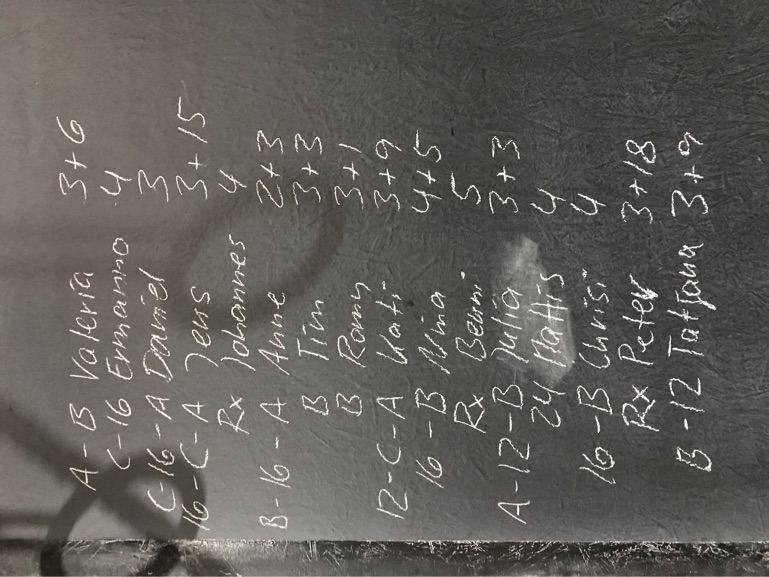 A-B Valeria 3+6
C-16 Ermanno 4
C-16-A Daniel 3
16-C-A Jens 3+15
Rx Johannes 4
B-16-A Anne 2+3
B Tim 3+3
B Romy 3+1
12-C-A Kati 3+9
16-B Nina 4+5
Rx Benni 5
A-12-B Julia 3+3
24 Mattis 4
16-B Chrisi 4
Rx Peter 3+18
B-12 Tatjana 3+9